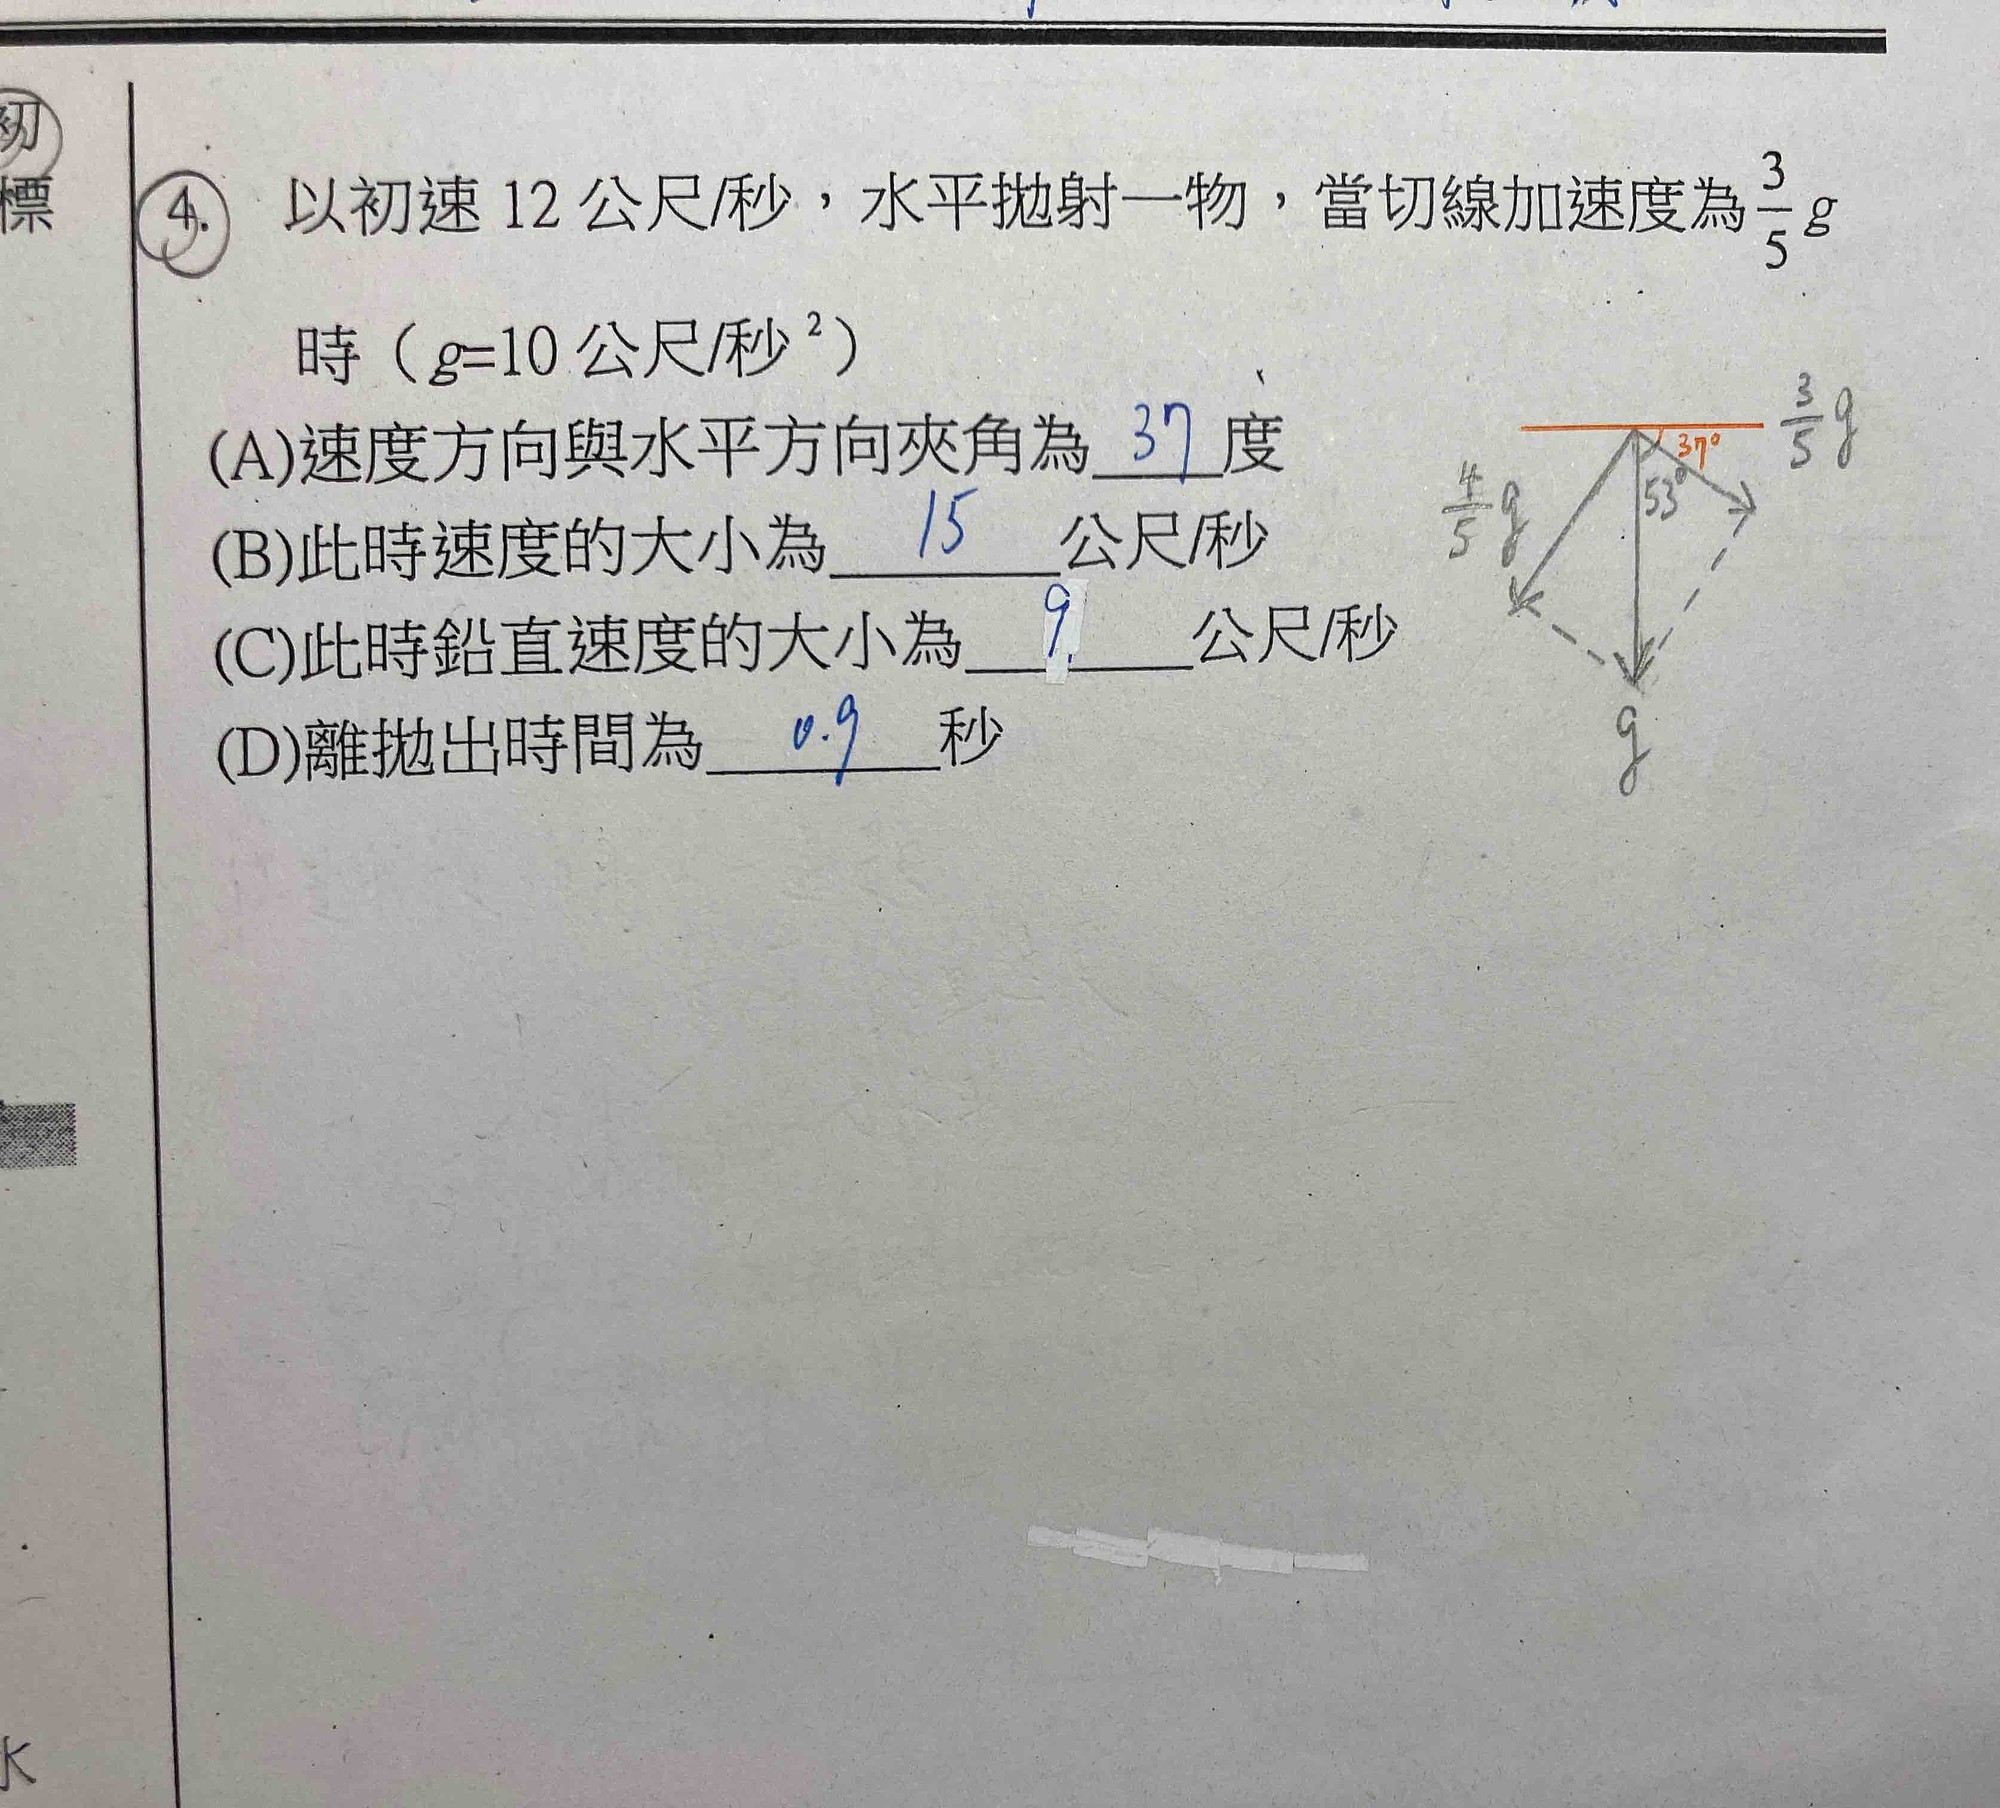 初
標
4. 以初速 12 公尺/秒，水平拋射一物，當切線加速度為 3/5 g
時（g=10 公尺/秒²）
(A)速度方向與水平方向夾角為 37 度
(B)此時速度的大小為 15 公尺/秒
(C)此時鉛直速度的大小為 9 公尺/秒
(D)離拋出時間為 0.9 秒
3/5 g
37°
4/5 g
53°
g
水